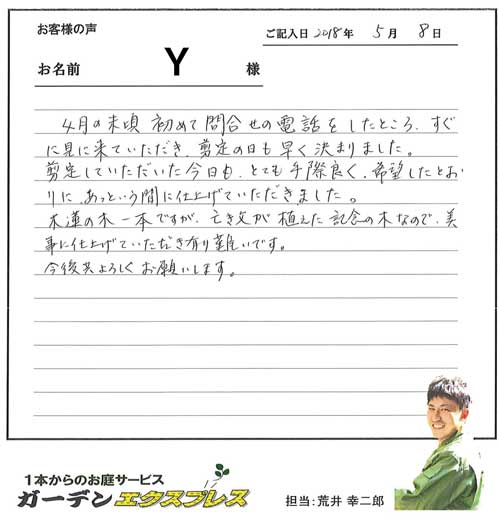 お客様の声
ご記入日 2018年 5月 8日
お名前 Y 様
4月の末頃 初めて問合せの電話をしたところ、すぐ
に見に来ていただき、剪定の日も早く決まりました。
剪定していただいた今日も、とても手際良く、希望したとお
りに、あっという間に仕上げていただきました。
木蓮の木一本ですが、亡き父が植えた記念の木なので、美
事に仕上げていただき有り難いです。
今後共よろしくお願いします。
1本からのお庭サービス
ガーデンエクスプレス
担当:荒井 幸二郎